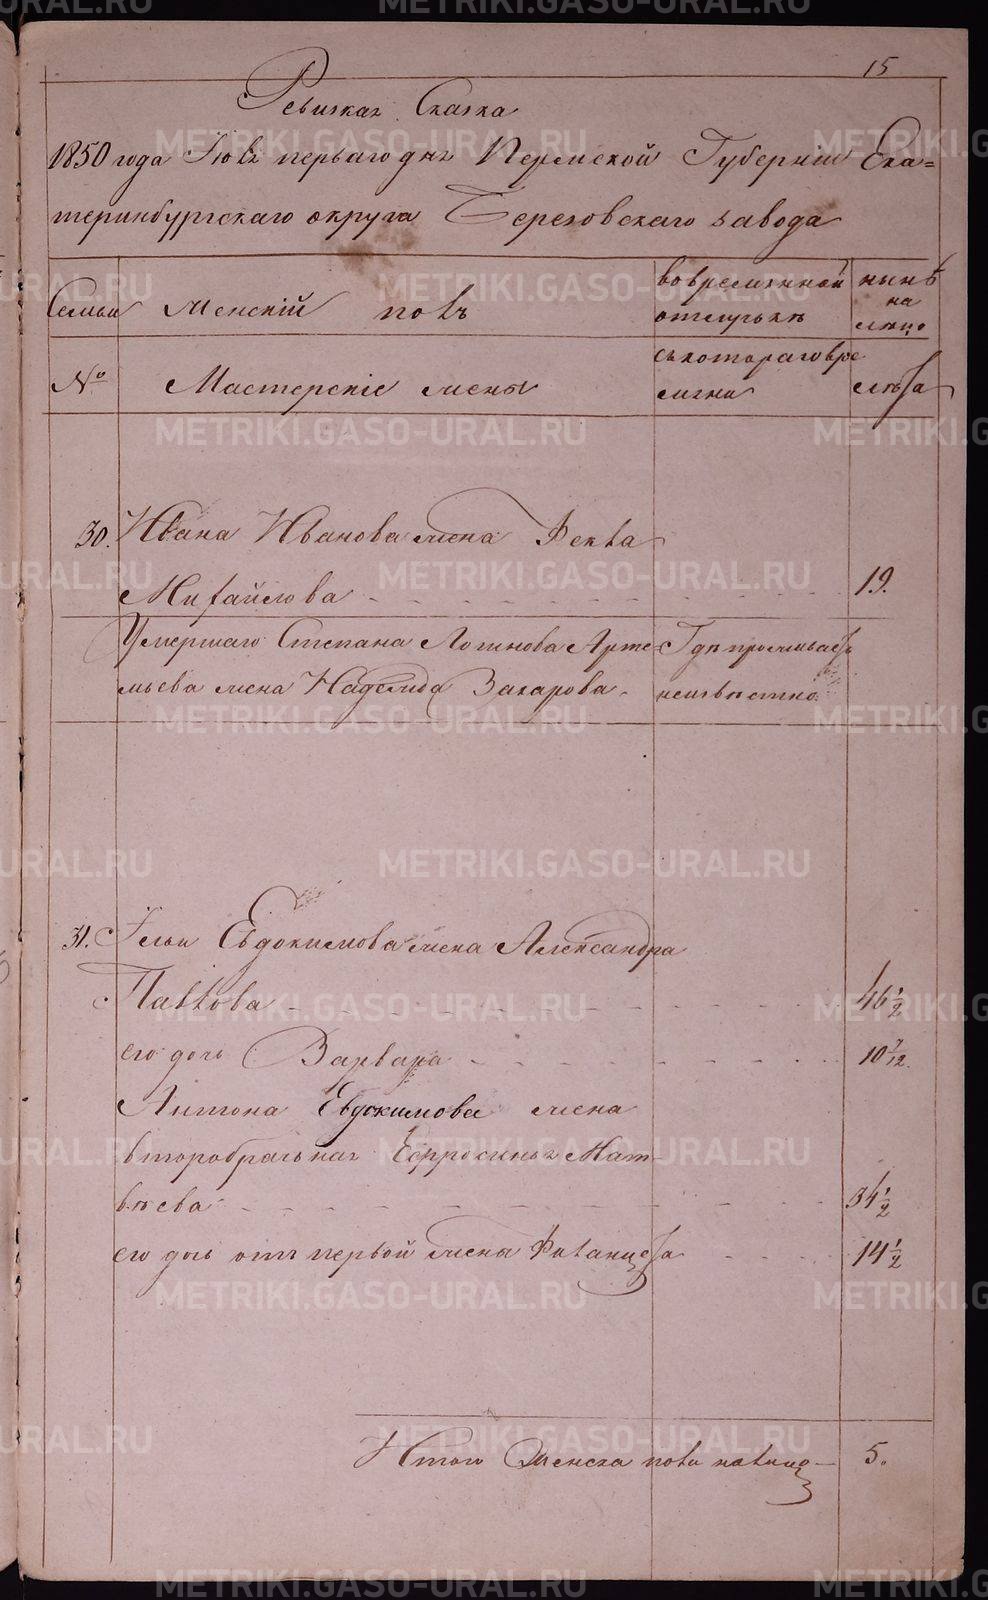 15
Ревизкая Сказка
1850 года Іюля перваго дня Пермской Губерніи Ека=
теринбургскаго округа Березовскаго завода
Семьи
Женскій полъ
во временной
отлучкѣ
нынѣ
на
лицо
№
Мастерскіе жены
съ котораго вре
мени
лѣта
30. Ивана Иванова жена Фекла
Михайлова 19.
Умершаго Степана Логинова Арте-
мьева жена Надежда Захарова
Гдѣ проживаетъ
неизвѣстно
31. Ильи Евдокимова жена Александра
Павлова 46 1/2
его дочь Варвара 10 7/12.
Антона Евдокимова жена
второбрачьная Ефросинья Мат-
вѣева 34 1/2
его дочь отъ первой жены Фіванцета 14 1/2
Итого Женска пола налицо 5.
METRIKI.GASO-URAL.RU